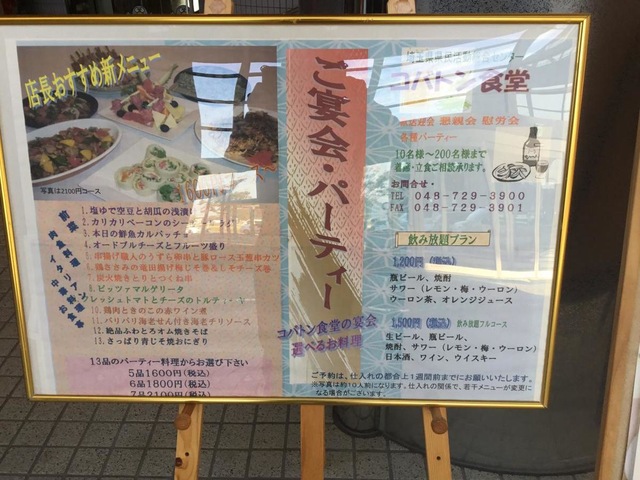 店長おすすめ新メニュー
写真は2100円コース
前菜
肉魚料理
イタリアン
中華
お食事
1. 塩ゆで空豆と胡瓜の浅漬
2. カリカリベーコンのシー
3. 本日の鮮魚カルパッチョ
4. オードブルチーズとフルーツ盛り
5. 串揚げ職人のうずら卵串と豚ロース玉葱串カツ
6. 鶏ささみの竜田揚げ梅じそ巻
7. 炭火焼きとりとつくね串
8. ピッツァマルゲリータ
レッシュトマトとチーズのトルティ
10. 鶏肉ときのこの赤ワイン煮
11. パリパリ海老せん付き海老チリソース
12. 絶品ふわとろオム焼きそば
13. さっぱり青じそ焼おにぎり
13品のパーティー料理からお選び下さい
5品1600円(税込)
6品1800円(税込)
7品2100円(税込)
ご宴会・パーティー
コバトン食堂の宴会
選べるお料理
埼玉県県民活動総合センター
コバトン食堂
懇親会 慰労会
各種パーティー
10名様～200名様まで
着席・立食ご相談承ります。
お問合せ・
TEL 048-729-3900
FAX 048-729-3901
飲み放題プラン
1,200円 (税込)
瓶ビール、焼酎
サワー(レモン・梅・ウーロン)
ウーロン茶、オレンジジュース
1,500円 (税込) 飲み放題フルコース
生ビール、瓶ビール、
焼酎、サワー(レモン・梅・ウーロン)
日本酒、ワイン、ウイスキー
ご予約は、仕入れの都合上1週間前までにお願いいたします。
※写真は約10人前になります。仕入れの関係で、若干メニューが変更に
なる場合がございます。